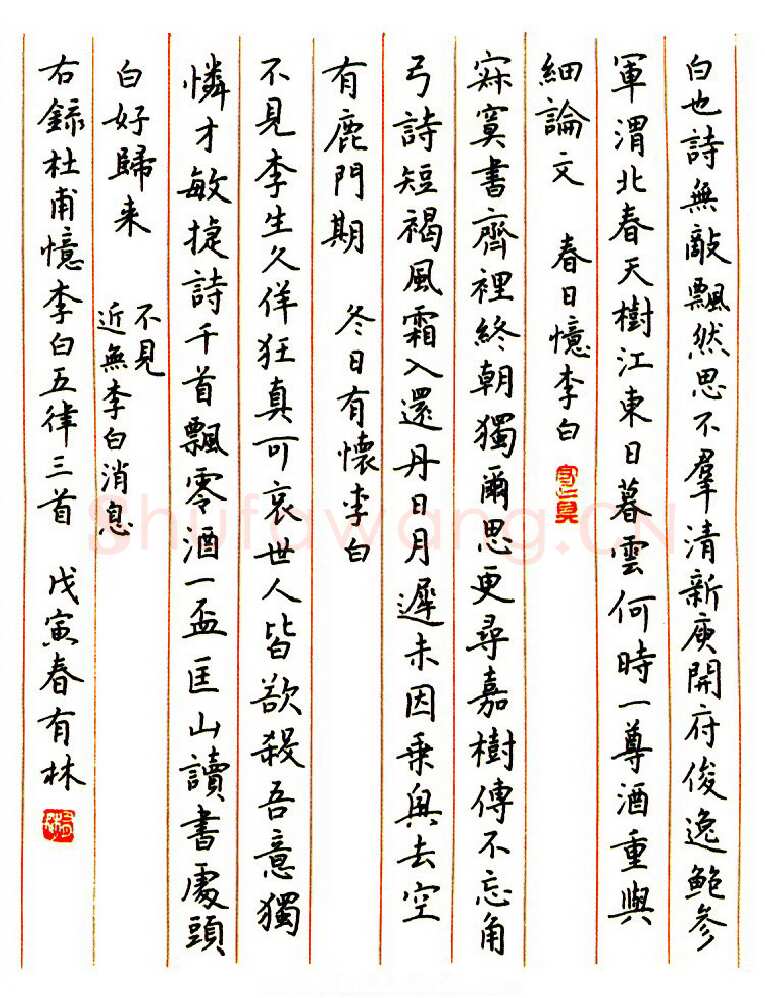 白也詩無敵飄然思不羣清新庾開府俊逸鮑參
軍渭北春天樹江東日暮雲何時一尊酒重與
細論文 春日憶李白
寂寞書齊裡終朝獨爾思更尋嘉樹傳不忘角
弓詩短褐風霜入還丹日月遲未因乗興去空
有鹿門期 冬日有懷李白
不見李生久佯狂真可哀世人皆欲殺吾意獨
憐才敏捷詩千首飄零酒一盃匡山讀書處頭
白好歸来 不見
近無李白消息
右録杜甫憶李白五律三首 戊寅春有林
Shufawang.CN